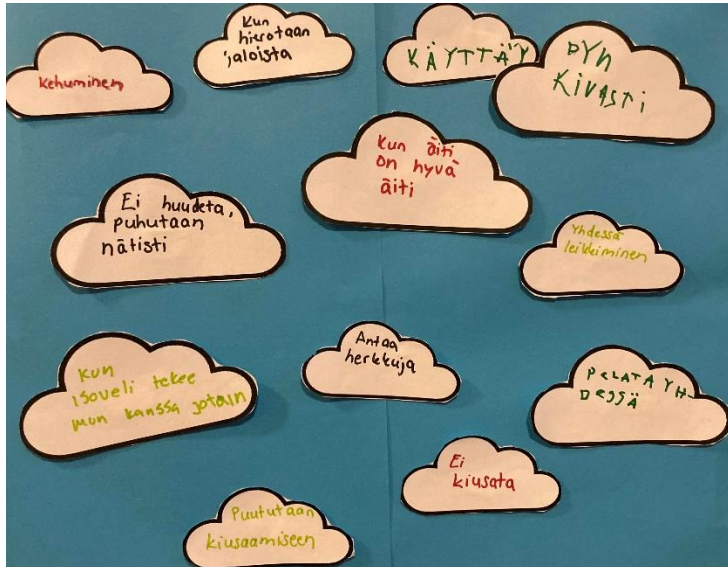 Kehuminen
Kun
hierotaan
jaloista
KÄYTTÄY
DYN
KIVASTI
Kun äiti
on hyvä
äiti
Ei huudeta,
puhutaan
nätisti
Yhdessä
leikkiminen
Kun
isoveli tekee
mun kanssa jotain
Antaa
herkkuja
PELATA YH-
DESSÄ
Ei
kiusata
Puututaan
kiusaamiseen